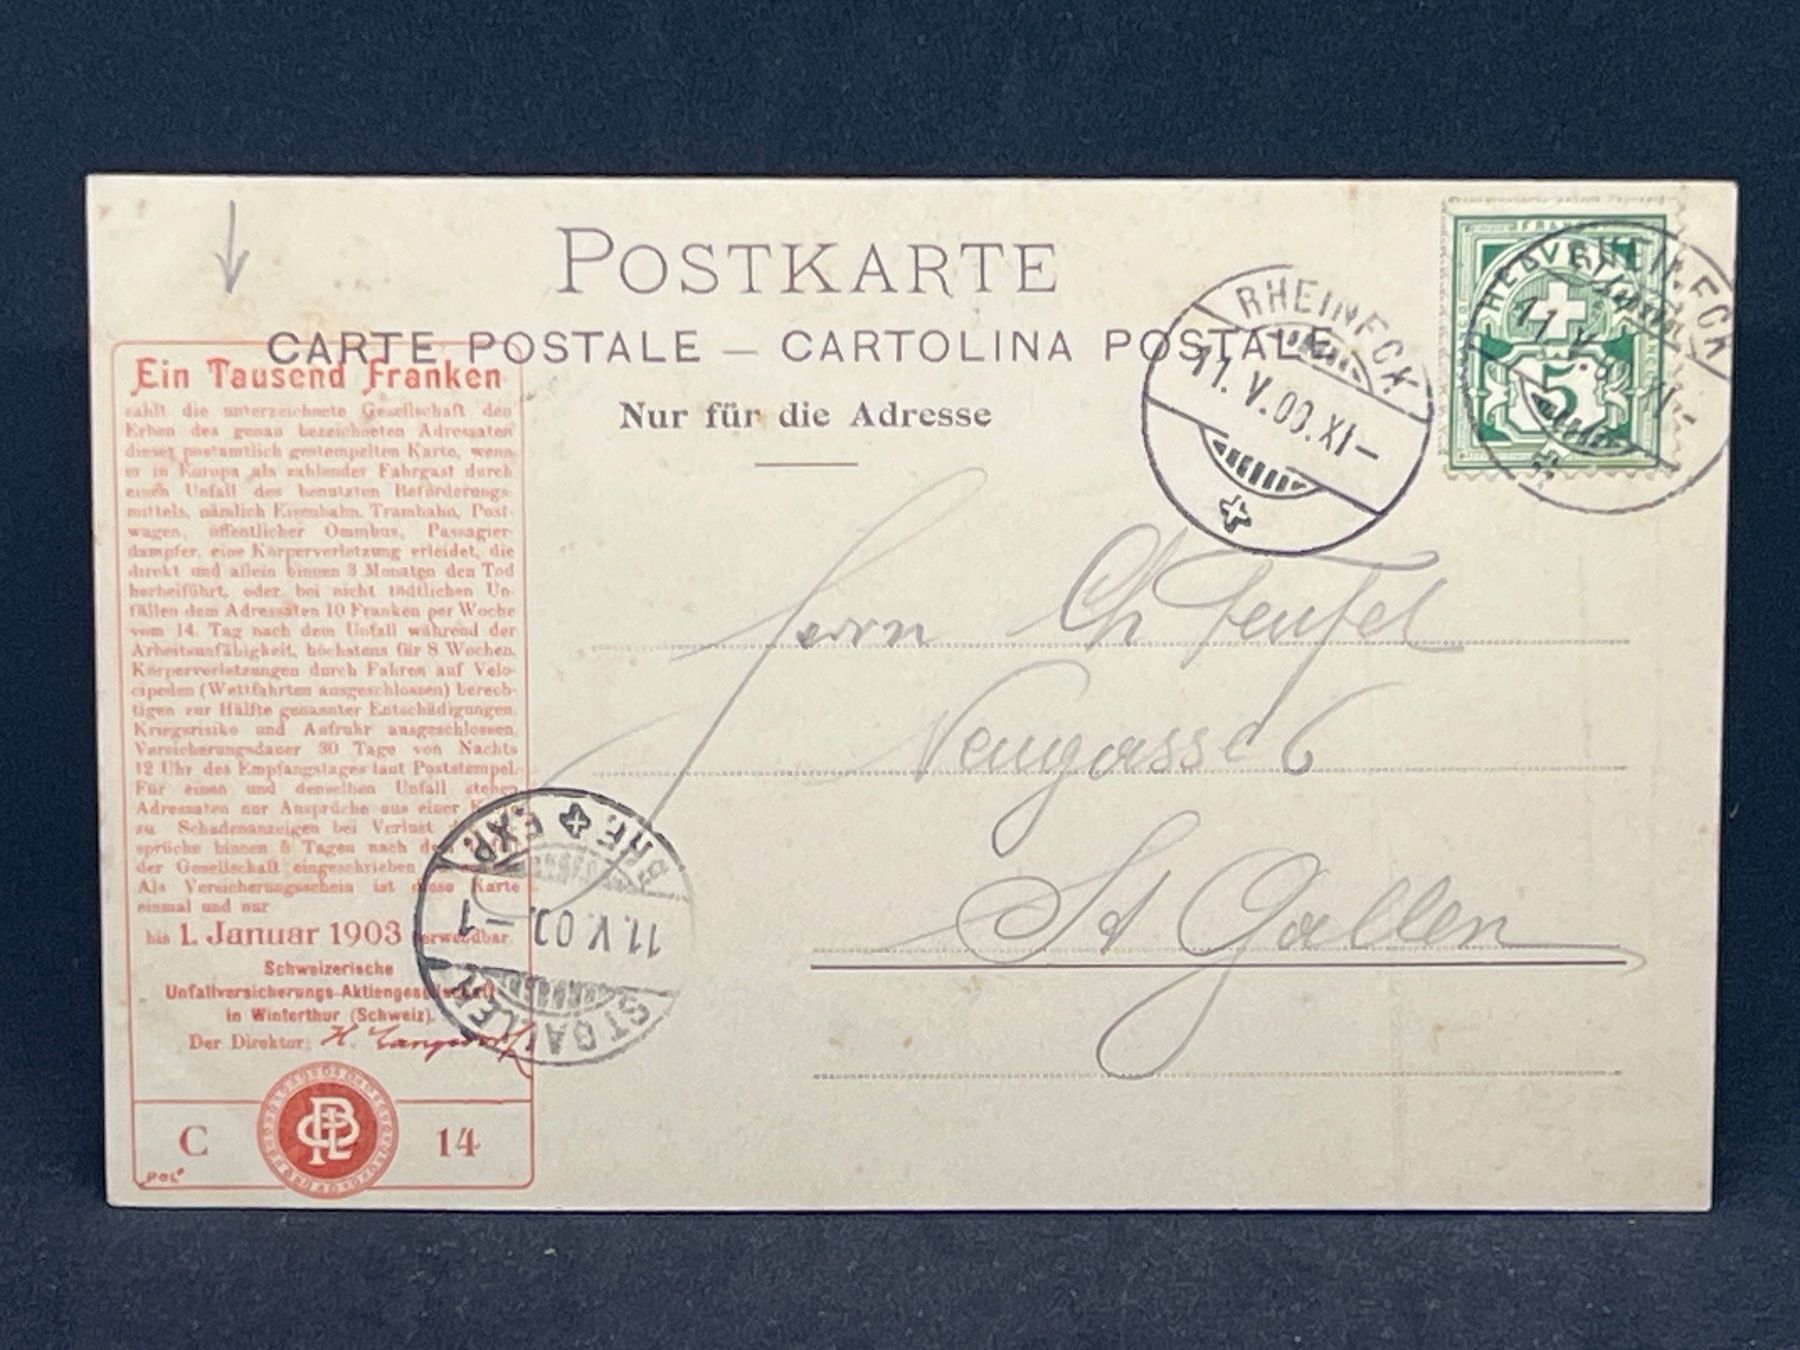 POSTKARTE
CARTE POSTALE — CARTOLINA POSTALE
Nur für die Adresse
RHEINECK
11. V. 00. XI–
RHEINECK
11. V.
FRANCO
5
Herrn Ch Teufel
Neugasse 6
St Gallen
Ein Tausend Franken
zahlt die unterzeichnete Gesellschaft den
Erben des genau bezeichneten Adressaten
dieser postamtlich gestempelten Karte, wenn
er in Europa als zahlender Fahrgast durch
einen Unfall des benutzten Beförderungs-
mittels, nämlich Eisenbahn, Trambahn, Post-
wagen, öffentlicher Omnibus, Passagier-
dampfer, eine Körperverletzung erleidet, die
direkt und allein binnen 3 Monaten den Tod
herbeiführt, oder bei nicht tödtlichen Un-
fällen dem Adressaten 10 Franken per Woche
vom 14. Tag nach dem Unfall während der
Arbeitsunfähigkeit, höchstens für 8 Wochen.
Körperverletzungen durch Fahren auf Velo-
cipeden (Wettfahrten ausgeschlossen) berech-
tigen zur Hälfte genannter Entschädigungen.
Kriegsrisiko und Aufruhr ausgeschlossen.
Versicherungsdauer 30 Tage von Nachts
12 Uhr des Empfangstages laut Poststempel.
Für einen und denselben Unfall stehen
Adressaten nur Ansprüche aus einer Karte
zu. Schadenanzeigen bei Verlust der
sprüche binnen 5 Tagen nach dem
der Gesellschaft eingeschrieben
Als Versicherungsschein ist diese Karte
einmal und nur
bis 1. Januar 1903 verwendbar.
Schweizerische
Unfallversicherungs-Aktiengesellschaft
in Winterthur (Schweiz).
Der Direktor:
C 14
POL
ST. GALLEN
11. V. 00. – 1
BRF. EXP.